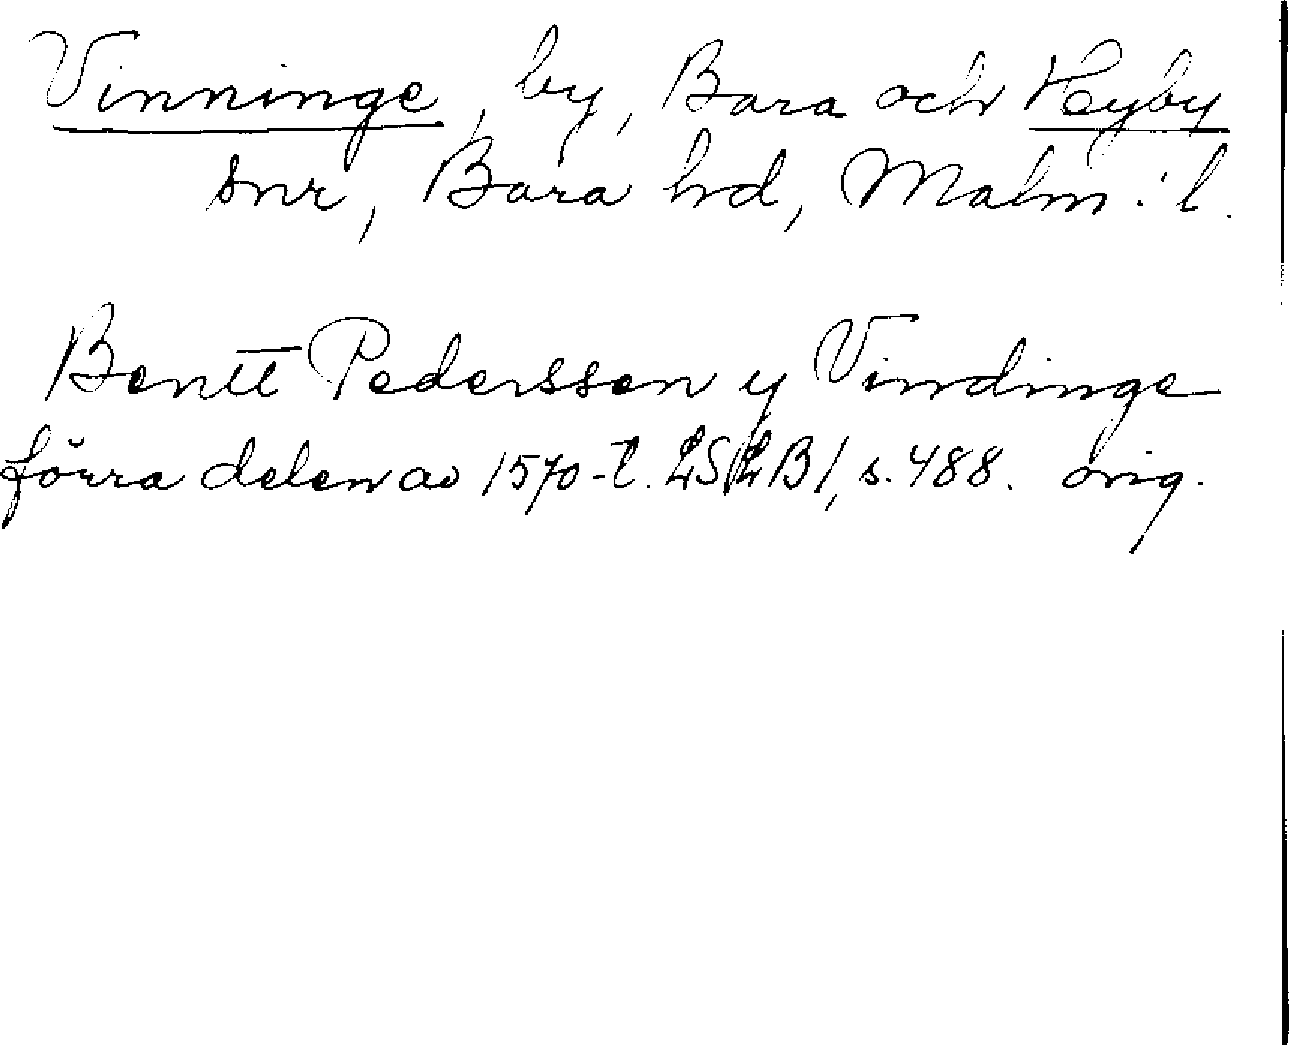 Vinninge, by, Bara och Hyby
snr, Bara hd, Malm. l.
Bentt Pederssen y Vindinge
förra delen av 1570-t. LSLB 1, s. 488. orig.